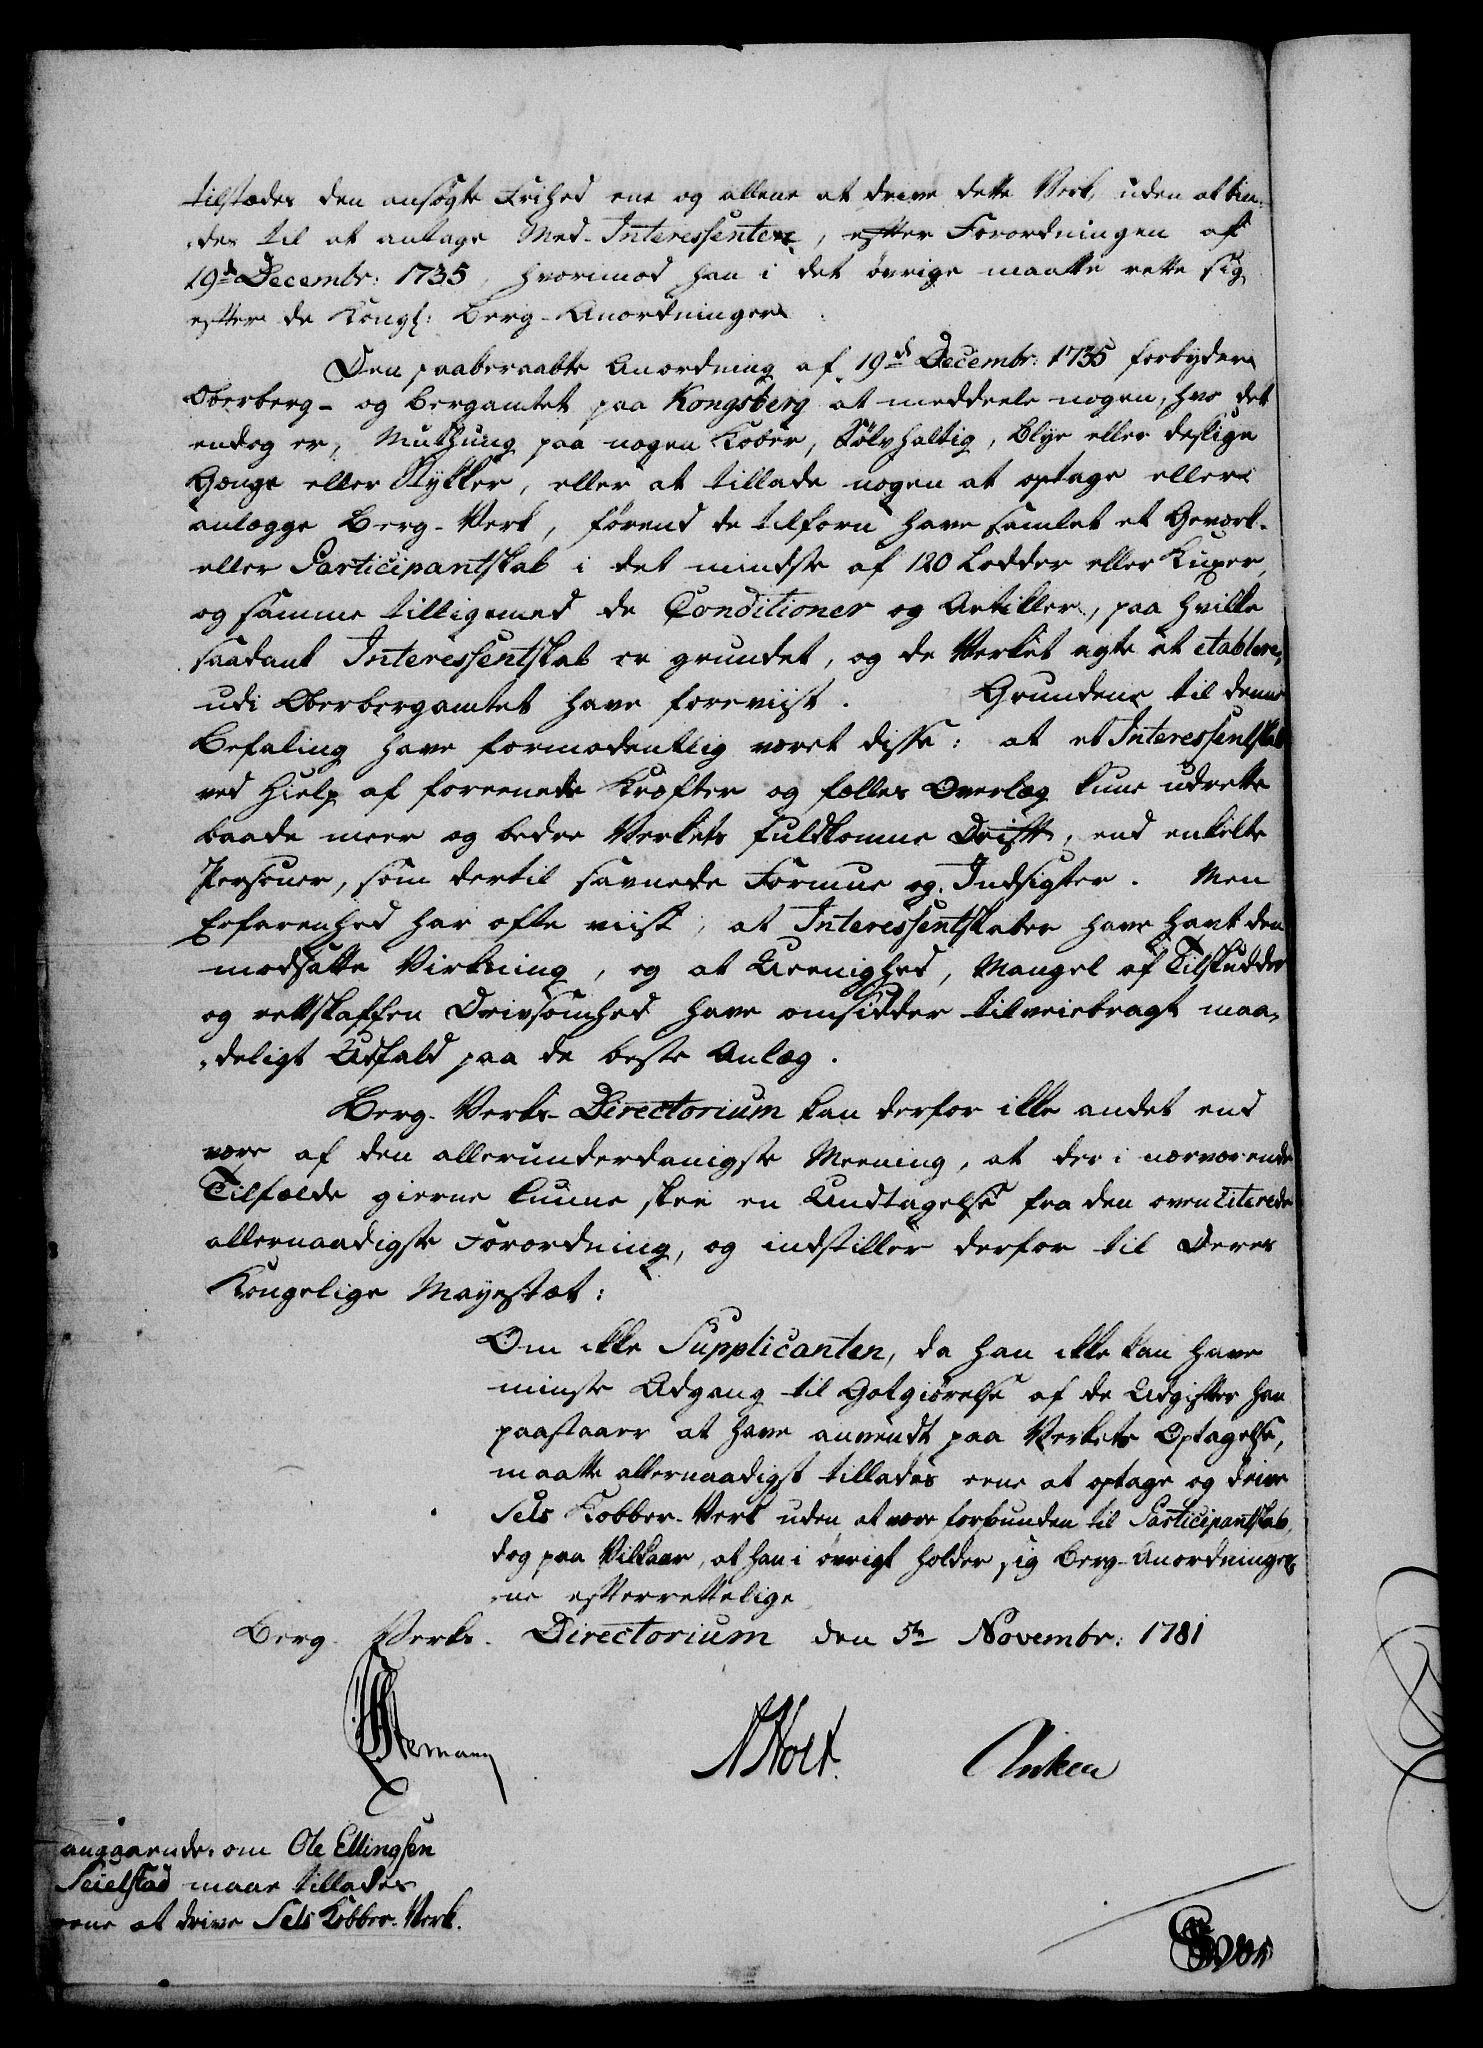 tilstædes den ansøgte Frihed ene og allene at drive dette Verk, uden at bin-
des til at antage Med-Interessentere, efter Forordningen af
19de Decembr: 1735, hvorimod han i det øvrige maatte rette sig
efter de Kongl: Berg-Anordninger.
Den paaberaabte Anordning af 19de Decembr: 1735 forbyder
Oberberg- og Bergamtet paa Kongsberg at meddeele nogen, hvo det
endog er, Muthung paa nogen Kober, Sølvhaltig, Blye eller deslige
Gænge eller Stykker, eller at tillade nogen at optage eller
anlægge Berg-Verk, førend de tilforn have samlet et Gewerk-
eller Participantskab i det mindste af 120 Lodder eller Kuxer,
og samme tilligemed de Conditioner og Artikler, paa hvilke
saadant Interessentskab er grundet, og de Verket agte at etablere,
udi Oberbergamtet have foreviist. Grundene til denne
Befaling have formodentlig været disse: at et Interessentskab
ved Hielp af foreenede Kræfter og fælles Overlæg kune udrette
baade meer og bedre Verkets fuldkomne Drift, end enkelte
Personer, som dertil savnede Formue og Indsigter. Men
Erfarenhed har ofte viist, at Interessentskaber have havt den
modsatte Virkning, og at Ueenighed, Mangel af Tilskudder
og retskaffen Drivsomhed have omsidder tilveiebragt maa-
deligt Udfald paa de beste Anlæg.
Berg-Verks-Directorium kan derfor ikke andet end
være af den allerunderdanigste Meening, at der i nærværende
Tilfælde gierne kunne skee en Undtagelse fra den ovenciterede
allernaadigste Forordning, og indstiller derfor til Deres
Kongelige Mayestæt:
Om ikke Supplicanten, da han ikke kan have
minste Adgang til Godtgiørelse af de Udgifter han
paastaaer at have anvendt paa Verkets Optagelse,
maatte allernaadigst tillades eene at optage og drive
Sels Kobber-Verk uden at være forbunden til Participantskab,
dog paa Vilkaar, at han i øvrigt holder sig Berg-Anordninger-
ne efterrettelige
Berg-Verks-Directorium den 5te Novembr: 1781
Stemann
NHolt.
Anker
angaaende, om Ole Ellingsen
Seielstad maae tillades
eene at drive Sels Kobber-Verk.